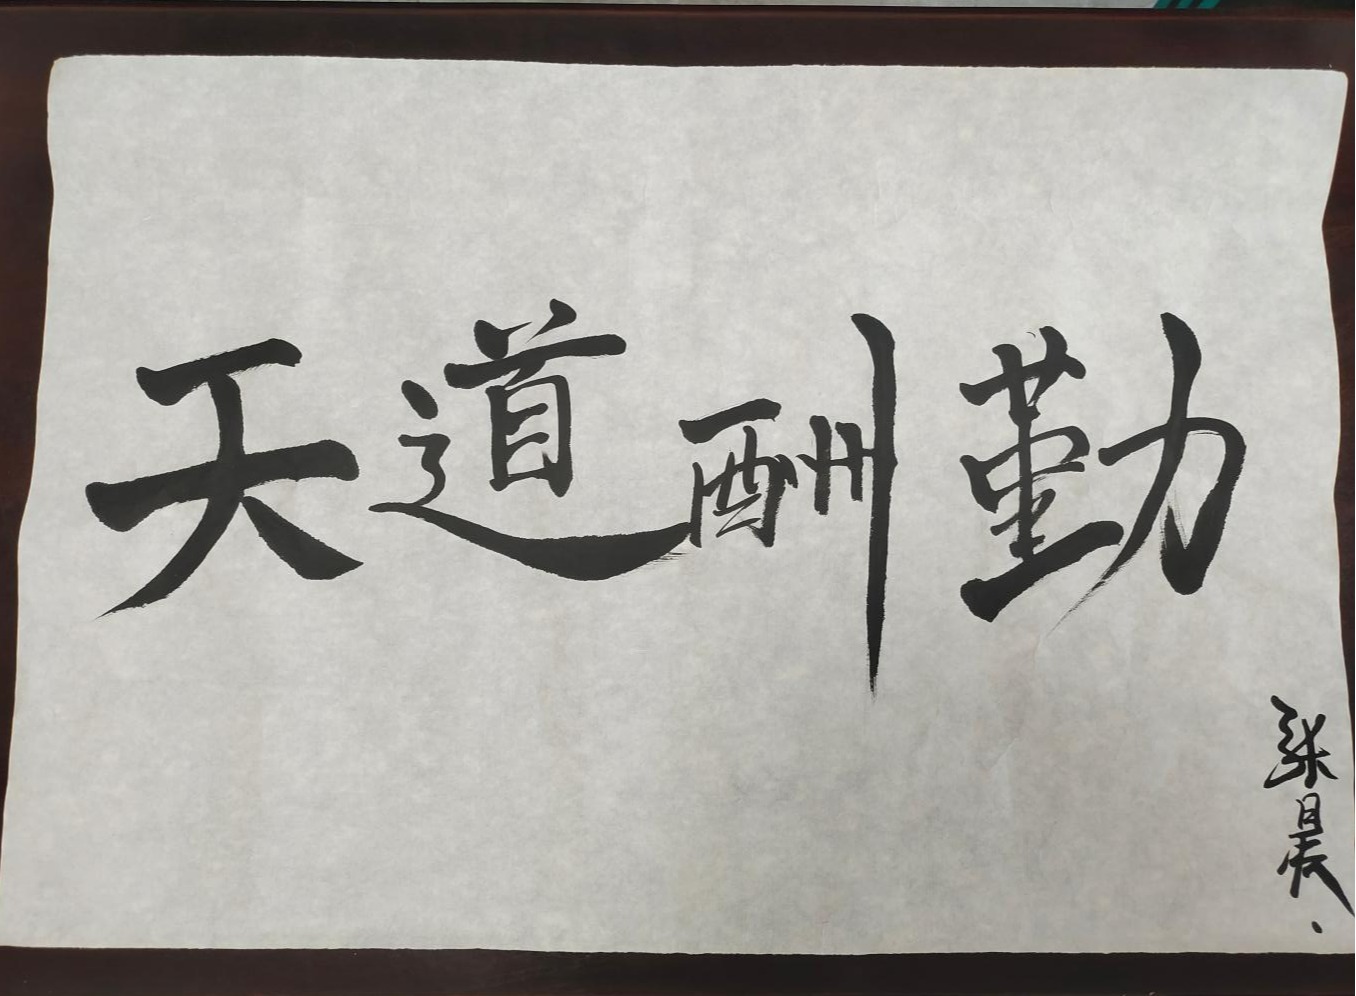 天道酬勤
张晨